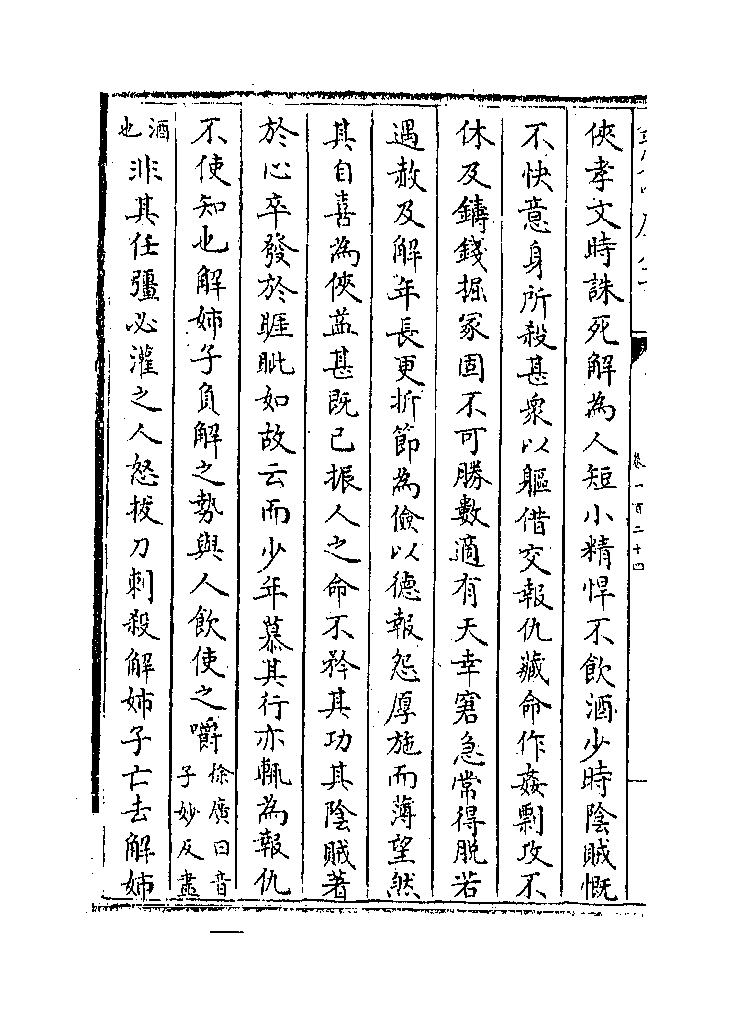 俠孝文時誅死解為人短小精悍不飲酒少時陰賊慨
不快意身所殺甚衆以軀借交報仇藏命作姦剽攻不
休及鑄錢掘冢固不可勝數適有天幸窘急常得脫若
遇赦及解年長更折節為儉以德報怨厚施而薄望然
其自喜為俠益甚既已振人之命不矜其功其陰賊著
於心卒發於睚眦如故云而少年慕其行亦輒為報仇
不使知也解姊子負解之勢與人飲使之嚼徐廣曰音子妙反盡
酒也非其任彊必灌之人怒拔刀刺殺解姊子亡去解姊
卷一百二十四